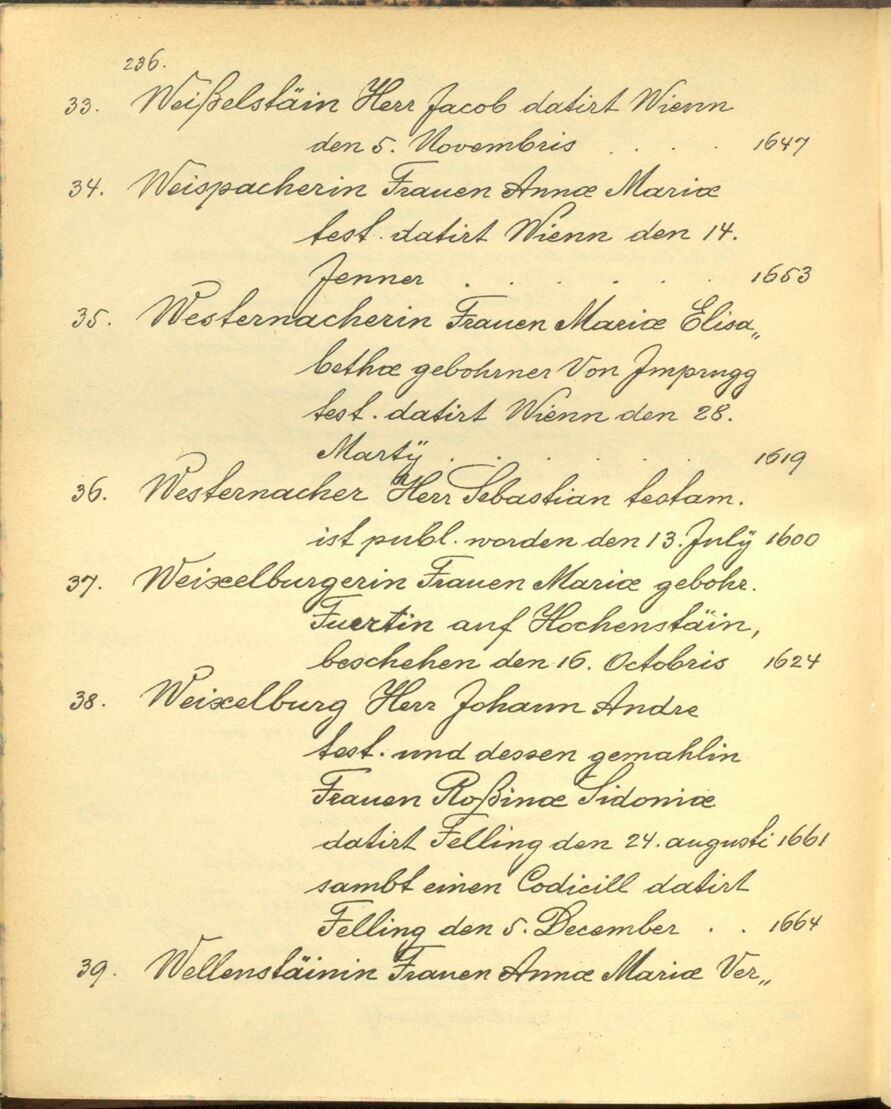 236.
33. Weißelstäin Herr Jacob datirt Wienn
den 5. Novembris . . . . 1647
34. Weispacherin Frauen Annæ Mariæ
test. datirt Wienn den 14.
Jenner . . . . . . 1653
35. Westernacherin Frauen Mariæ Elisa„
bethæ gebohrner Von Jmprugg
test. datirt Wienn den 28.
Martÿ . . . . . . . 1619
36. Westernacher Herr Sebastian testam.
ist publ. worden den 13. Julÿ 1600
37. Weixelburgerin Frauen Mariæ gebohr.
Fuertin auf Hochenstäin,
beschehen den 16. Octobris 1624
38. Weixelburg Herr Johann Andre
test. und dessen gemahlin
Frauen Roßinæ Sidoniæ
datirt Felling den 24. augusti 1661
sambt einen Codicill datirt
Felling den 5. December . . 1664
39. Wellenstäinin Frauen Annæ Mariæ Ver„